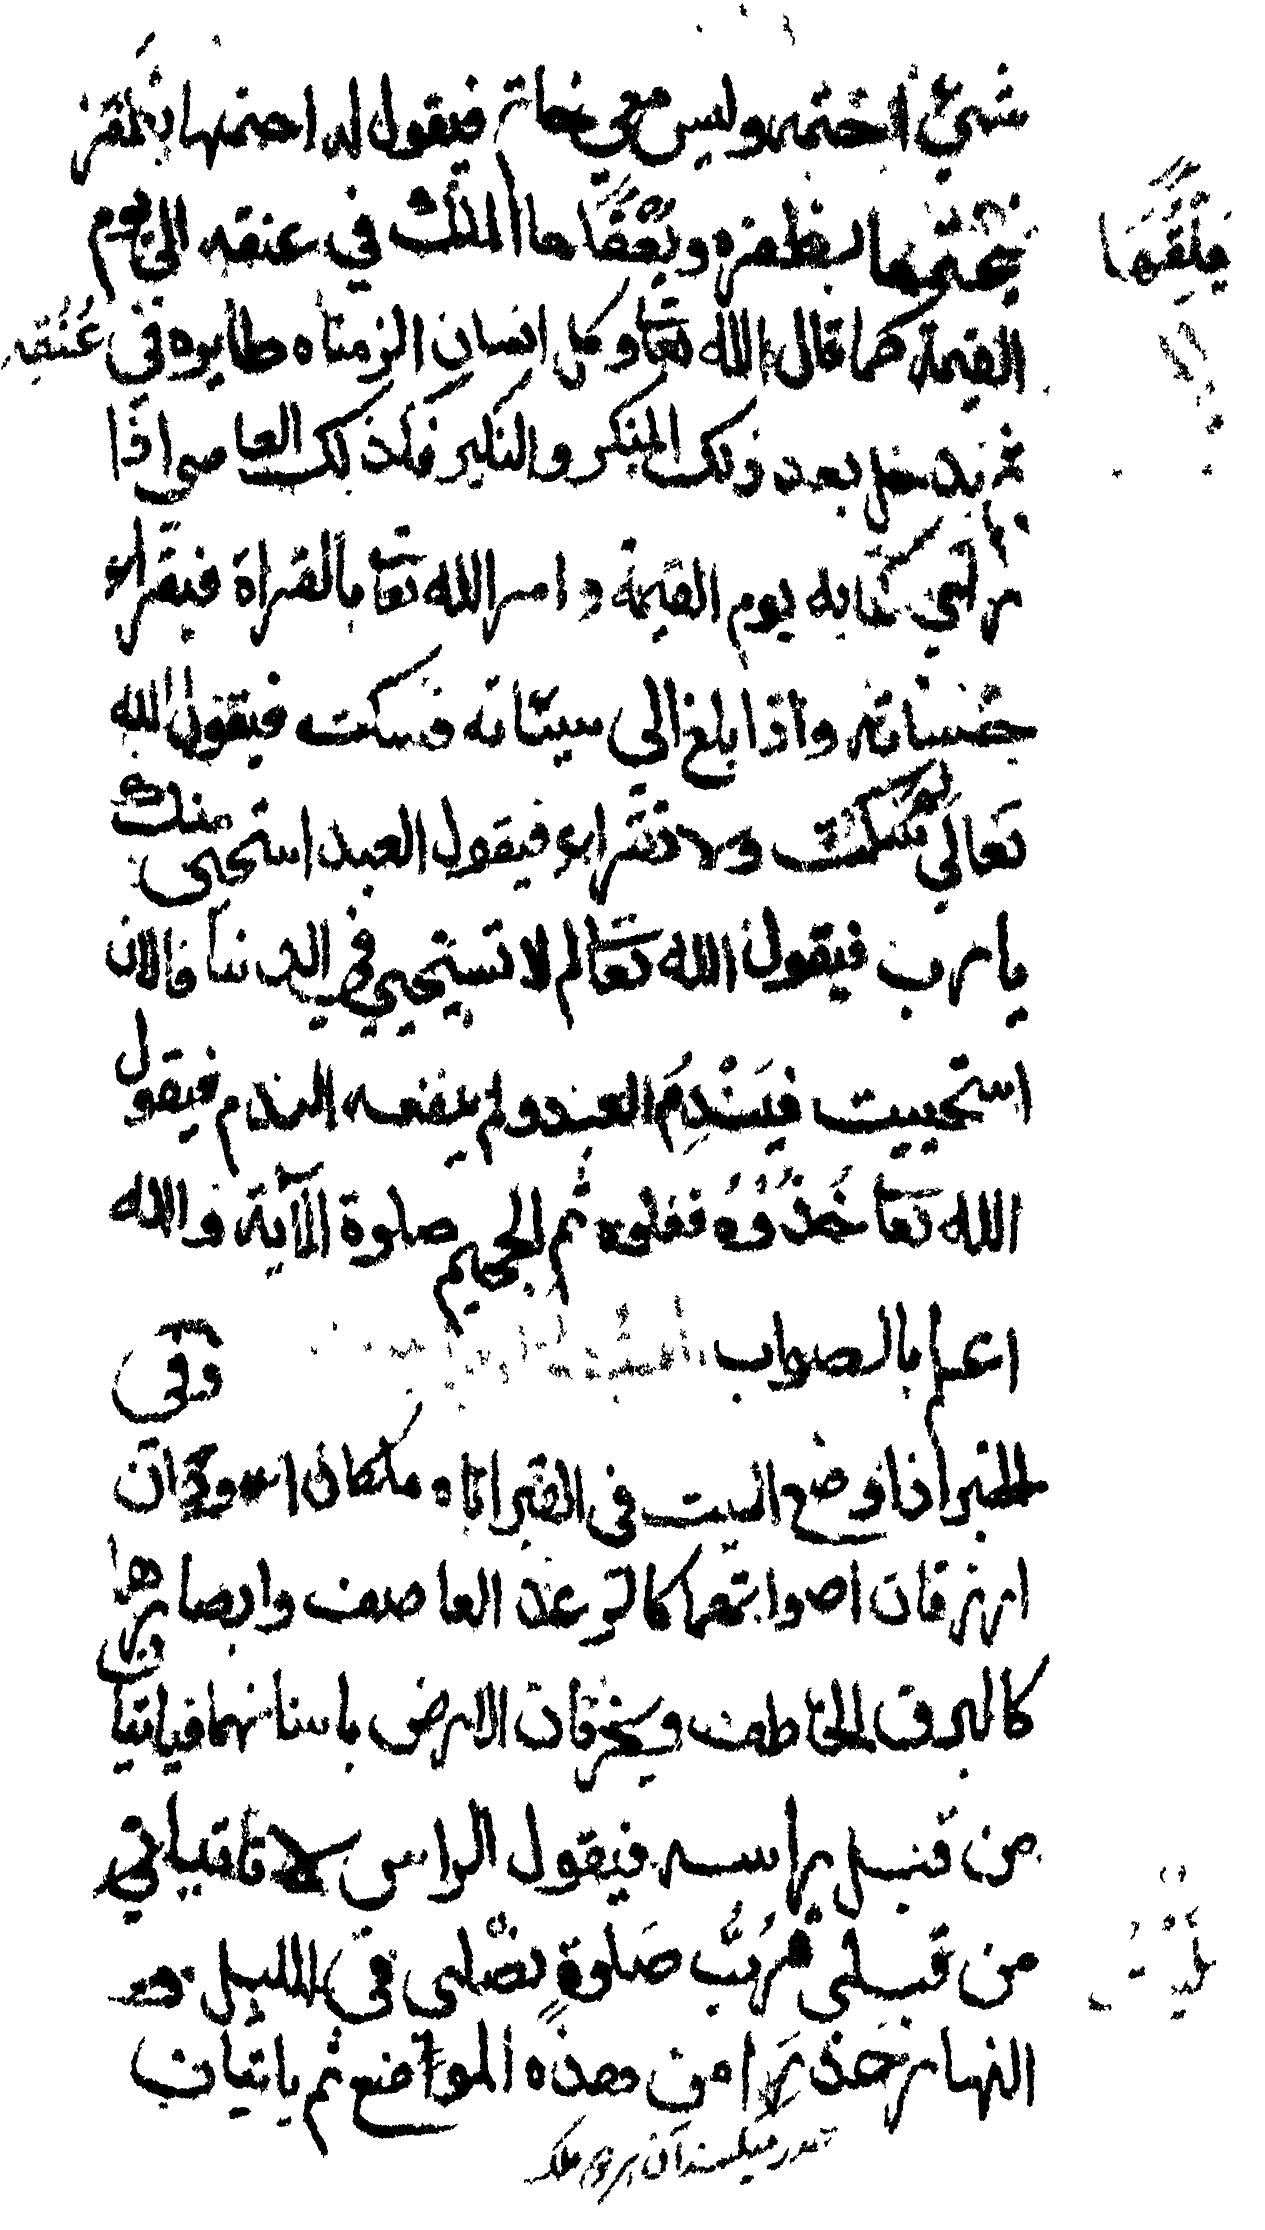 شيئ اختمه وليس معي خاتم فيقول له اختمها بظفر
فختمها بظفره ويعقها الملك في عنقه الى يوم
القيمة كما قال الله تعا وكل انسان الزمناه طايره في عنقه
ثم يدخل بعد ذلك المنكر والنكير فكذلك العاصي اذا
راي كتابه يوم القيمة و امر الله تعا بالقراة فيقراء
حسناته واذا بلغ الى سيئاته فسكت فيقول الله
تعالى لم سكت ولا تقراء فيقول العبد استحيى منك
يا رب فيقول الله تعا لم لا تستحيي في الدنيا فالان
استحييت فيندم العبد ولم ينفعه الندم فيقول
الله تعا خذوه فغلوه ثم الجحيم صلوة الآية والله
اعلم بالصواب وفي
الخبر اذا وضع الميت في القبر اتاه ملكان اسودان
ازرقان اصواتهما كالرعد العاصف وابصارهما
كالبرق الخاطف ويخرقان الارض باسنانهما فياتيا
من قبل راسه فيقول الراس لا تاتياني
من قبلي فرب صلوة يصلى في الليل و
النهار حذرا من هذه المواضع ثم ياتيان